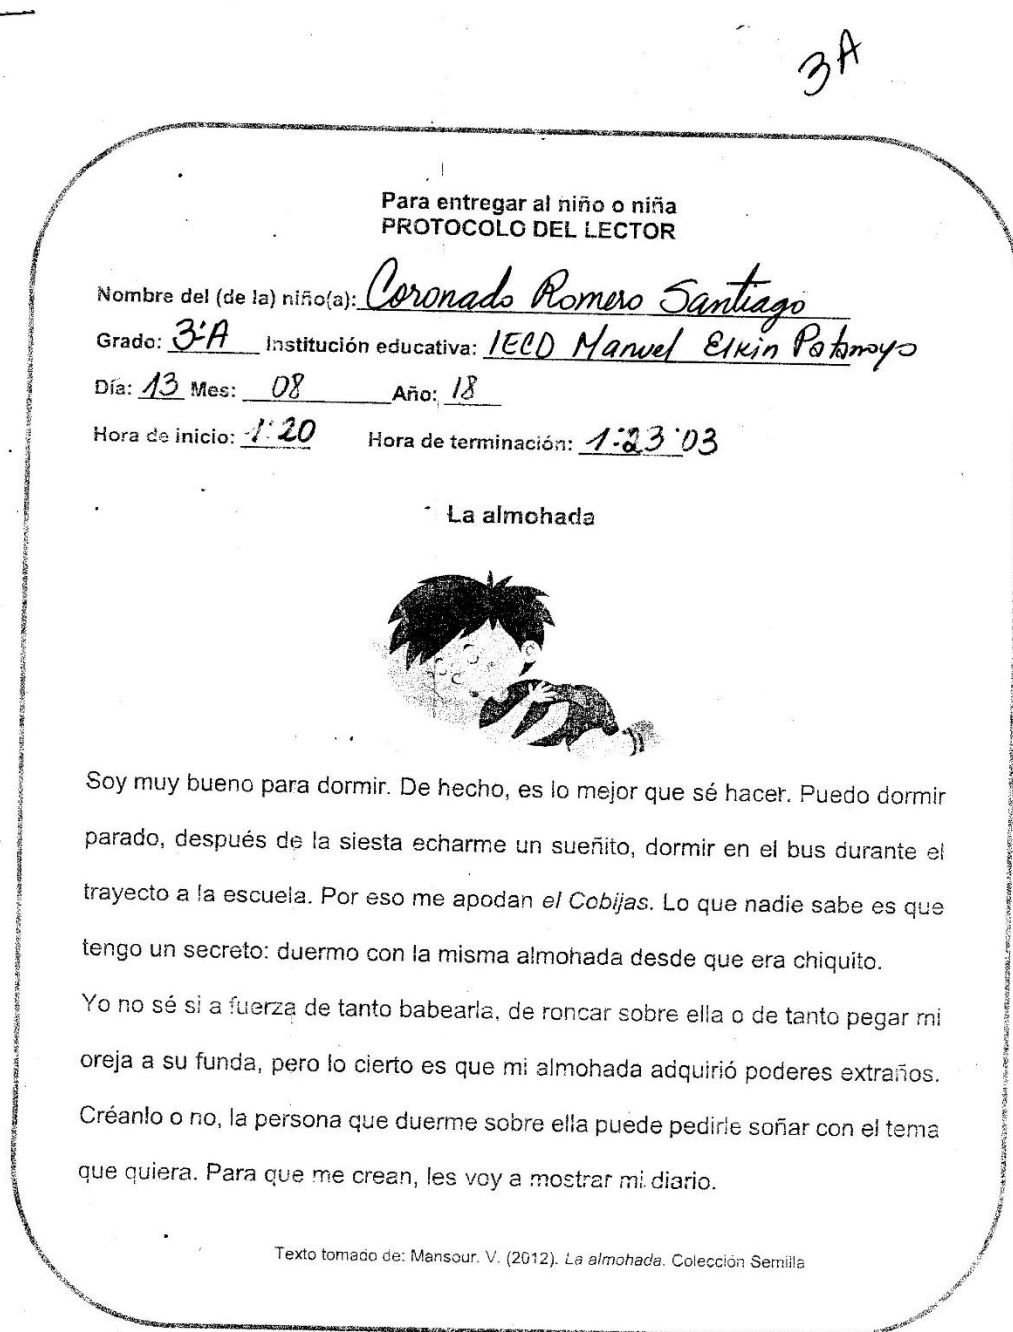 3A
Para entregar al niño o niña
PROTOCOLO DEL LECTOR
Nombre del (de la) niño(a): Coronado Romero Santiago
Grado: 3ºA Institución educativa: IECD Manuel Elkin Patarroyo
Día: 13 Mes: 08 Año: 18
Hora de inicio: 1:20 Hora de terminación: 1:23:03
La almohada
Soy muy bueno para dormir. De hecho, es lo mejor que sé hacer. Puedo dormir
parado, después de la siesta echarme un sueñito, dormir en el bus durante el
trayecto a la escuela. Por eso me apodan el Cobijas. Lo que nadie sabe es que
tengo un secreto: duermo con la misma almohada desde que era chiquito.
Yo no sé si a fuerza de tanto babearla, de roncar sobre ella o de tanto pegar mi
oreja a su funda, pero lo cierto es que mi almohada adquirió poderes extraños.
Créanlo o no, la persona que duerme sobre ella puede pedirle soñar con el tema
que quiera. Para que me crean, les voy a mostrar mi diario.
Texto tomado de: Mansour. V. (2012). La almohada. Colección Semilla